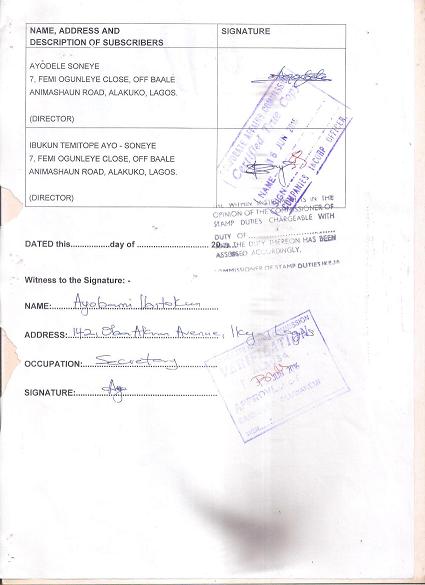 NAME, ADDRESS AND
DESCRIPTION OF SUBSCRIBERS
SIGNATURE
AYODELE SONEYE
7, FEMI OGUNLEYE CLOSE, OFF BAALE
ANIMASHAUN ROAD, ALAKUKO, LAGOS.
(DIRECTOR)
IBUKUN TEMITOPE AYO - SONEYE
7, FEMI OGUNLEYE CLOSE, OFF BAALE
ANIMASHAUN ROAD, ALAKUKO, LAGOS.
(DIRECTOR)
CORPORATE AFFAIRS COMMISSION
Certified True Copy
16 JUN
NAME
SIGN
COMPANIES INCORP OFFICER
WITHIN IS IN THE
OPINION OF THE COMMISSIONER OF
STAMP DUTIES CHARGEABLE WITH
DUTY OF
THE DUTY THEREON HAS BEEN
ASSESSED ACCORDINGLY.
COMMISSIONER OF STAMP DUTIES IKEJA
DATED this...............day of .......................... 20
Witness to the Signature: -
NAME: Ayobami
ADDRESS: 142, Oba Akran Avenue, Ikeja Lagos
OCCUPATION: Secretary
SIGNATURE: